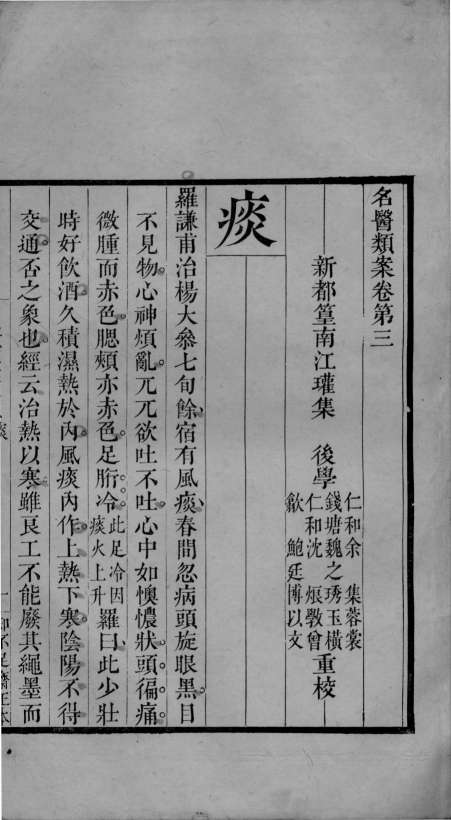 名醫類案卷第三
新都篁南江瓘集　後學
仁和余　集蓉裳
錢塘魏之琇玉橫
仁和沈　烺敩曾
歙　鮑廷博以文
重校
痰
羅謙甫治楊大叅七旬餘宿有風痰春間忽病頭旋眼黑目
不見物。心神煩亂。兀兀欲吐不吐。心中如懊憹狀。頭徧痛。
微腫而赤色。腮頰亦赤色。足胻冷。
此足冷因
痰火上升
羅曰此少壯
時好飲酒久積濕熱於內風痰內作上熱下寒陰陽不得
交通否之象也經云治熱以寒雖良工不能廢其繩墨而